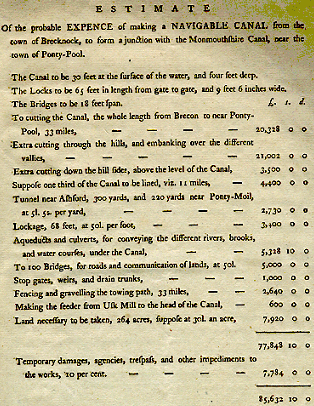 ESTIMATE
Of the probable EXPENCE of making a NAVIGABLE CANAL from the
town of Brecknock, to form a junction with the Monmouthſhire Canal, near the
town of Ponty-Pool.
The Canal to be 30 feet at the ſurface of the water, and four feet deep.
The Locks to be 65 feet in length from gate to gate, and 9 feet 6 inches wide.
The Bridges to be 18 feet ſpan. £. s. d.
To cutting the Canal, the whole length from Brecon to near Ponty-
Pool, 33 miles, — — — — 20,328 0 0
Extra cutting through the hills, and embanking over the different
vallies, — — — — — 21,002 0 0
Extra cutting down the hill ſides, above the level of the Canal, 3,500 0 0
Suppoſe one third of the Canal to be lined, viz. 11 miles, — 4,400 0 0
Tunnel near Aſhford, 300 yards, and 220 yards near Ponty-Moil,
at 5l. 5s. per yard, — — — — 2,730 0 0
Lockage, 68 feet, at 50l. per foot, — — — 3,400 0 0
Aqueducts and culverts, for conveying the different rivers, brooks,
and water courſes, under the Canal, — — 5,328 10 0
To 100 Bridges, for roads and communication of lands, at 50l. 5,000 0 0
Stop gates, weirs, and drain trunks, — — — 1,000 0 0
Fencing and gravelling the towing path, 33 miles, — 2,640 0 0
Making the feeder from Uſk Mill to the head of the Canal, — 600 0 0
Land neceſſary to be taken, 264 acres, ſuppoſe at 30l. an acre, 7,920 0 0
77,848 10 0
Temporary damages, agencies, treſpaſs, and other impediments to
the works, 10 per cent. — — — — 7,784 0 0
85,632 10 0